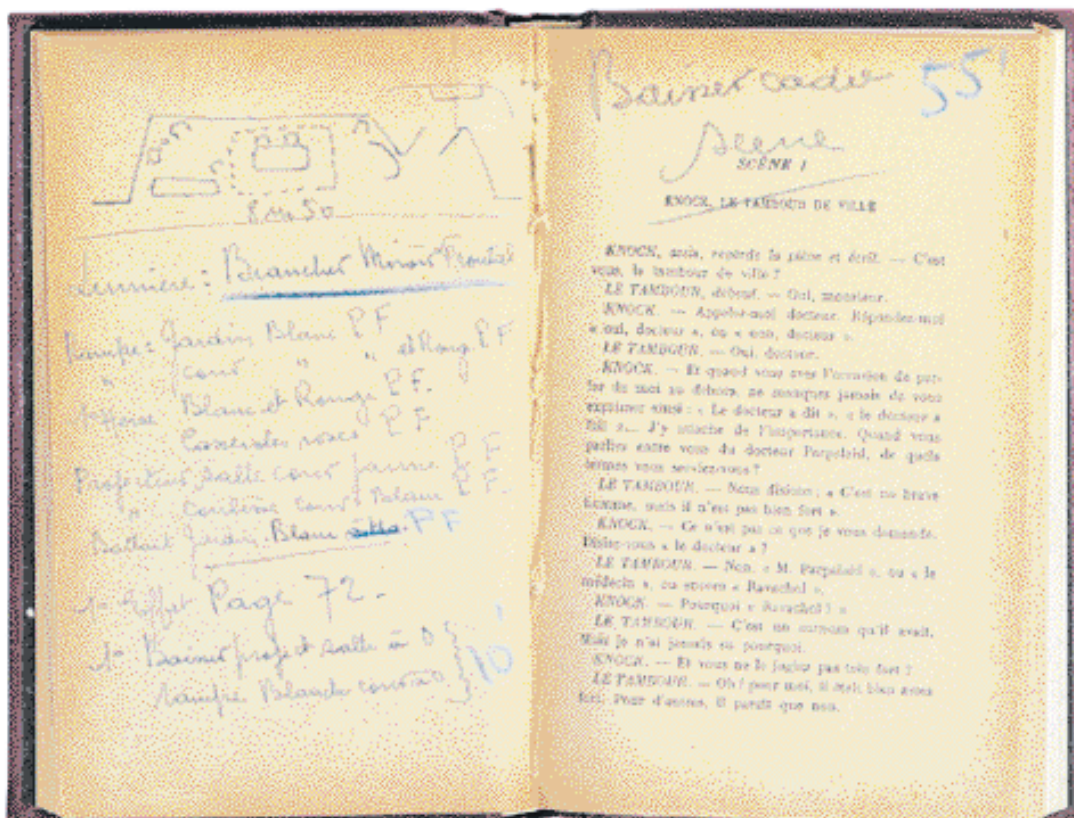 8 m 50
Lumière : Brancher Miroir Frontal
Rampe : Jardin Blanc P F
" cour " " et Roug. P F
Blanc et Rouge P F.
Casseroles roses P F
Projecteur salle cour jaune P F
" cour Blanc P F.
Jardin Blanc P F
1er Effet Page 72.
1° Baisser project salle à 0
rampe Blanche cour à 0
10'
Baisser 55'
scène
SCÈNE I
KNOCK, LE TAMBOUR DE VILLE
KNOCK, assis, regarde la pièce et écrit. — C'est
vous, le tambour de ville ?
LE TAMBOUR, debout. — Oui, monsieur.
KNOCK. — Appelez-moi docteur. Répondez-moi
« oui, docteur », ou « non, docteur ».
LE TAMBOUR. — Oui, docteur.
KNOCK. — Et quand vous avez l'occasion de par-
ler de moi au dehors, ne manquez jamais de vous
exprimer ainsi : « Le docteur a dit », « le docteur a
fait »... J'y attache de l'importance. Quand vous
parliez entre vous du docteur Parpalaid, de quels
termes vous serviez-vous ?
LE TAMBOUR. — Nous disions : « C'est un brave
homme, mais il n'est pas bien fort ».
KNOCK. — Ce n'est pas ce que je vous demande.
Disiez-vous « le docteur » ?
LE TAMBOUR. — Non. « M. Parpalaid », ou « le
médecin », ou encore « Ravachol ».
KNOCK. — Pourquoi « Ravachol » ?
LE TAMBOUR. — C'est un surnom qu'il avait.
Mais je n'ai jamais su pourquoi.
KNOCK. — Et vous ne le jugiez pas très fort ?
LE TAMBOUR. — Oh ! pour moi, il était bien assez
fort. Pour d'autres, il paraît que non.